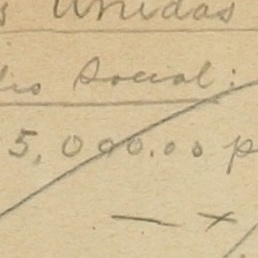 s Unidas
dio Social:
5,000.00 p
— x